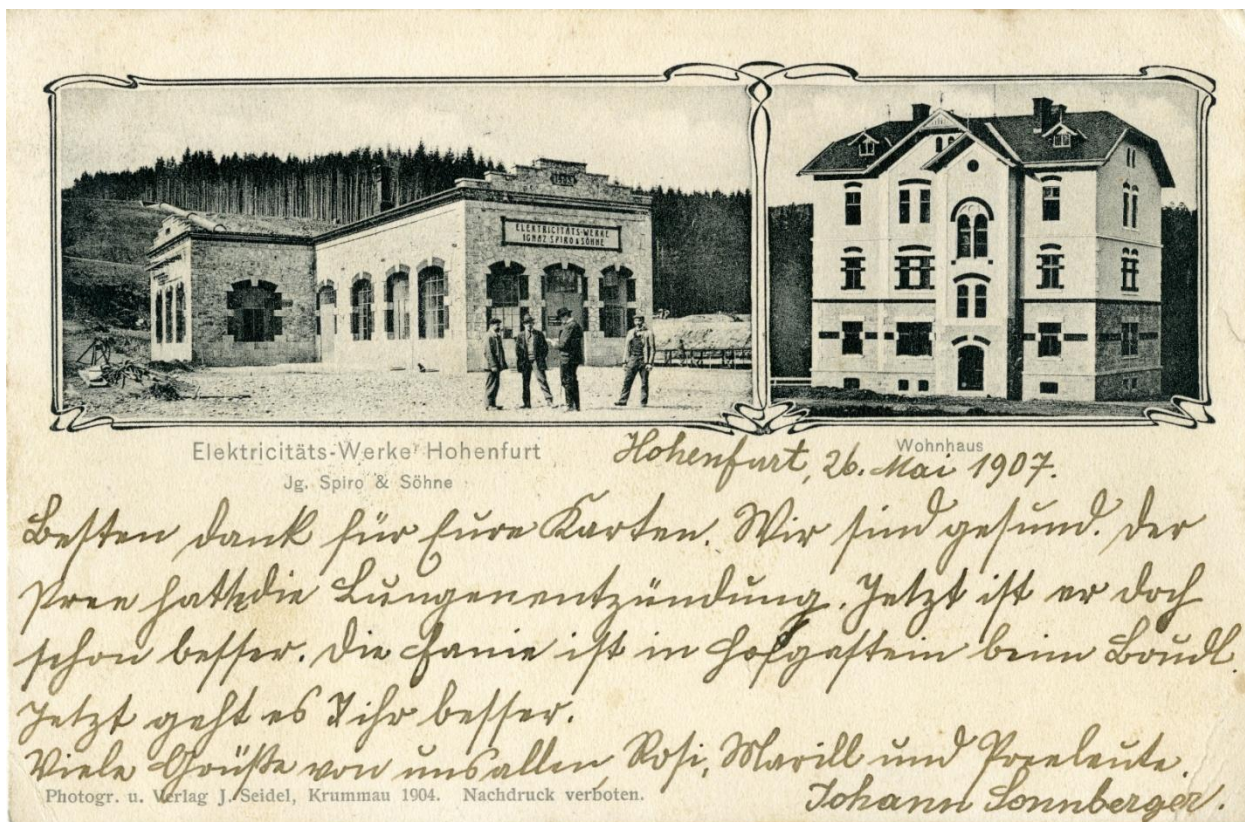 ELEKTRICITÄTS-WERKE
IGNAZ SPIRO & SÖHNE
Elektricitäts-Werke Hohenfurt
Jg. Spiro & Söhne
Wohnhaus
Hohenfurt, 26. Mai 1907.
Besten Dank für Eure Karten. Wir sind gesund. Der
Pree hatte die Lungenentzündung. Jetzt ist er doch
schon besser. Die Fanie ist in Hofgastein beim Loudl.
Jetzt geht es ihr besser.
Viele Grüße von uns allen, Rosi, Marill und Preeleute.
Johann Sonnberger.
Photogr. u. Verlag J. Seidel, Krummau 1904. Nachdruck verboten.